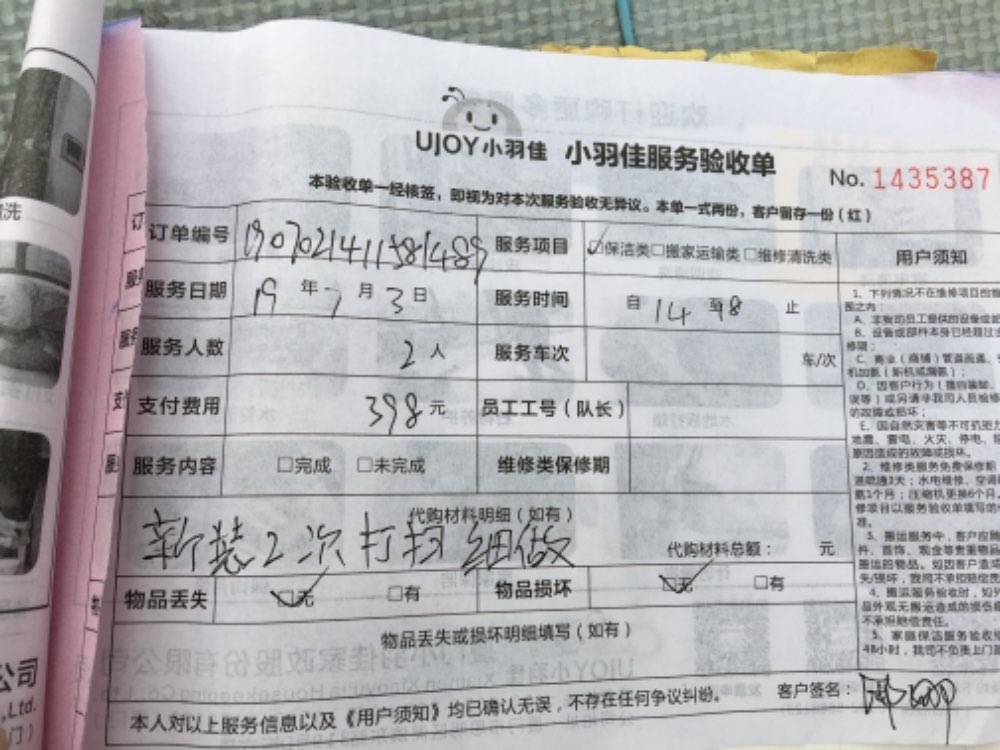 UJOY小羽佳 小羽佳服务验收单
No. 1435387
本验收单一经核签，即视为对本次服务验收无异议。本单一式两份，客户留存一份（红）
订单编号 服务项目 ☑保洁类□搬家运输类□维修清洗类
服务日期 19 年 7 月 3 日 服务时间 自 14 至 18 止
服务人数 2 人 服务车次 车/次
支付费用 398 元 员工工号（队长）
服务内容 □完成 □未完成 维修类保修期
代购材料明细（如有）
新装2次打扫 细做
代购材料总额： 元
物品丢失 ☑无 □有 物品损坏 ☑无 □有
物品丢失或损坏明细填写（如有）
本人对以上服务信息以及《用户须知》均已确认无误，不存在任何争议纠纷。 客户签名：
用户须知
1、下列情况不在维修项目的
围之内：
A、非我司员工提供的设备或
B、设备或部件本身已经超过
修期；
C、商业（商铺）管道疏通、
机加氨（新机或漏氨）；
D、因客户行为（擅自装卸、
误等）或另请非我司人员检修
的故障或损坏；
E、因自然灾害等不可抗拒力
地震、雷电、火灾、停电、
原因造成的故障或损坏。
2、维修类服务免费保修期
道疏通3天；水电维修、空调
氨1个月；压缩机更换6个月
修项目以服务验收单填写的
准。
3、搬运服务中，客户应
件、首饰、现金等贵重物品
搬运的物品。如因客户遗
失/损坏，我司不承担赔偿
4、搬运服务验收时，如
品外观无搬运造成的损伤
不承担赔偿责任。
5、家庭保洁服务验收
48小时，我司不负责上门
公司
,Ltd.
门）